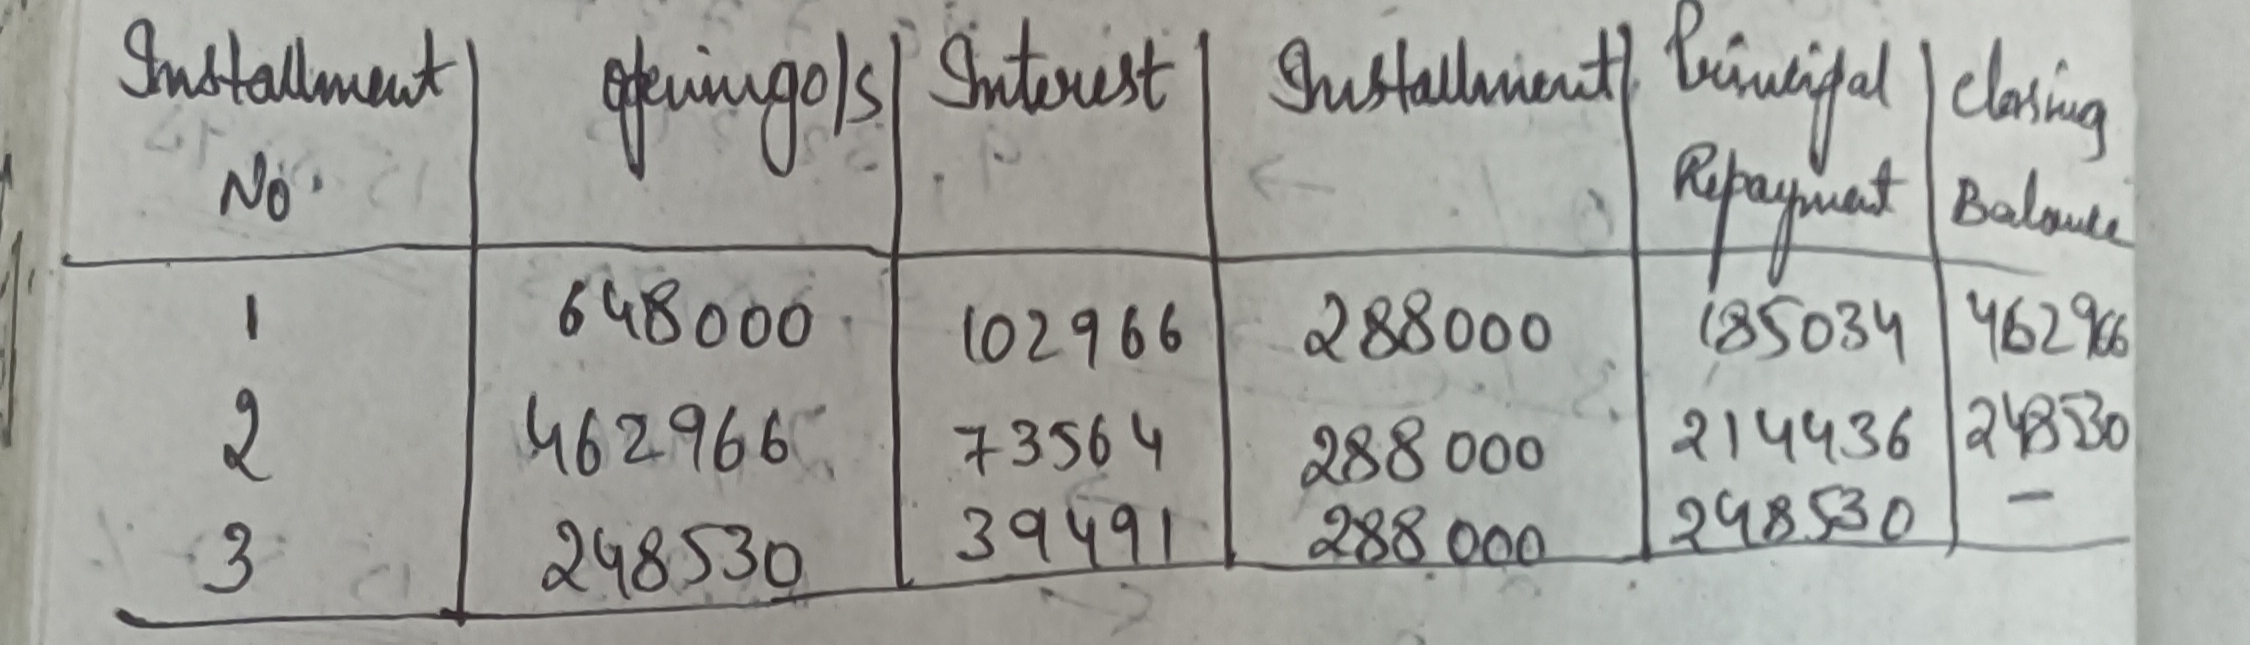 Installment No. | Opening o/s | Interest | Installment | Principal Repayment | Closing Balance
1 | 648000 | 102966 | 288000 | 185034 | 462966
2 | 462966 | 73564 | 288000 | 214436 | 248530
3 | 248530 | 39491 | 288000 | 248530 | —